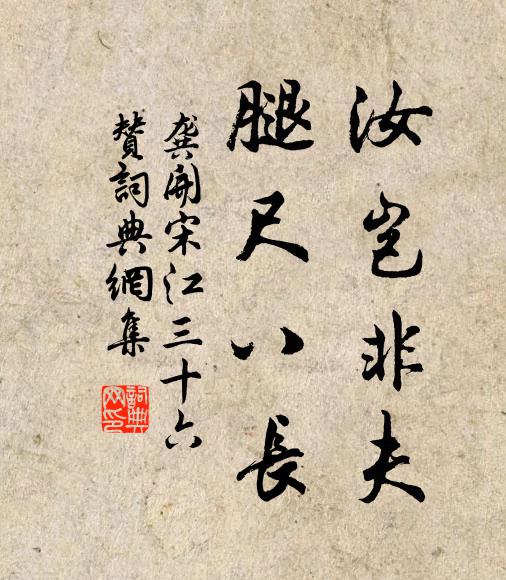 汝豈非夫
腿尺八長
龔開宋江三十六
贊詞典網集
詞典網印